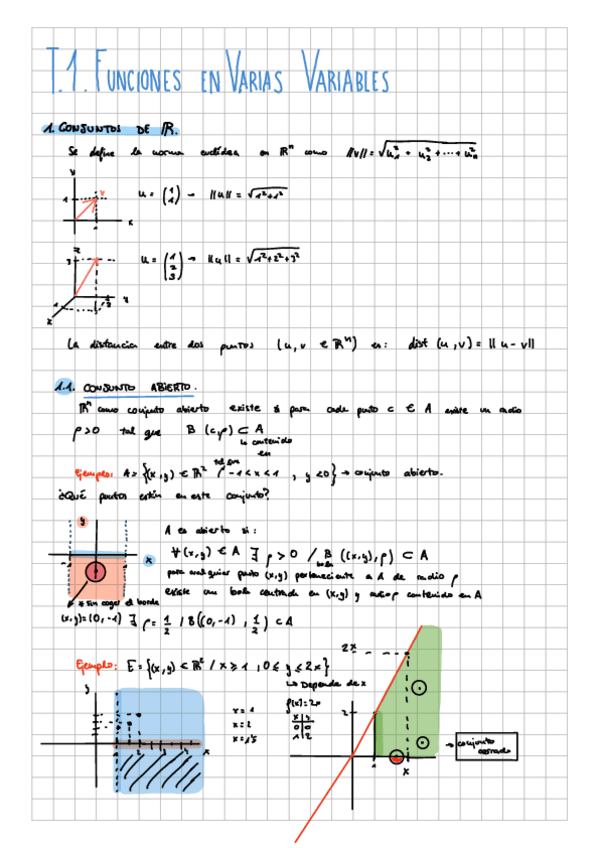 T.1. FUNCIONES EN VARIAS VARIABLES
1. CONJUNTOS DE ℝ.
Se define la norma euclídea en ℝⁿ como ||v|| = √(u₁² + u₂² + ... + uₙ²)
y
1
v
1
x
u = (1 1) → ||u|| = √(1²+1²)
z
3
1
2
y
x
u = (1 2 3) → ||u|| = √(1²+2²+3²)
La distancia entre dos puntos (u, v ∈ ℝⁿ) es: dist (u, v) = || u - v||
1.1. CONJUNTO ABIERTO.
ℝⁿ como conjunto abierto existe si para cada punto c ∈ A existe un radio
ρ>0 tal que B (c,ρ) ⊂ A
↳ contenido en
Ejemplo: A = {(x,y) ∈ ℝ² / -1<x<1 , y<0} → conjunto abierto.
tal que
¿Qué puntos están en este conjunto?
y
x
A es abierto si:
∀(x,y) ∈ A ∃ ρ>0 / B ((x,y),ρ) ⊂ A
bola
para cualquier punto (x,y) perteneciente a A de radio ρ
existe una bola centrada en (x,y) y radio ρ contenido en A
* sin coger el borde
(x,y)=(0,-1) ∃ ρ = 1/2 / B((0,-1), 1/2) ⊂ A
Ejemplo: E = {(x,y) ∈ ℝ² / x≥1 , 0≤y≤2x}
↳ Depende de x
y
x
x = 1
x = 2
x = 1'5
f(x) = 2x
x y
0 0
1 2
2x
2
1
x
→ conjunto cerrado